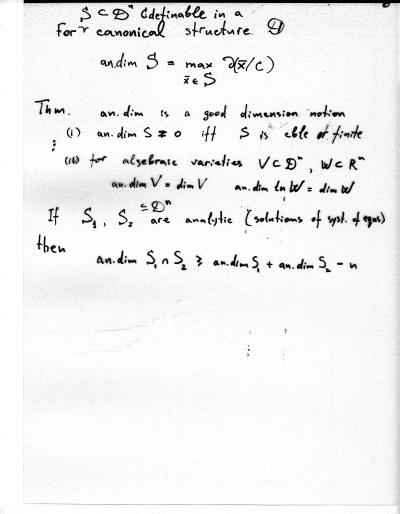 S ⊂ 𝒟ⁿ C-definable in a
For canonical structure 𝒟
an.dim S = max ∂(x̄/C)
x̄ ∈ S
Thm. an.dim is a good dimension notion
(i) an.dim S = 0 iff S is cble or finite
⋮
(iii) for algebraic varieties V ⊂ 𝒟ⁿ, W ⊂ Rⁿ
an.dim V = dim V an.dim ln W = dim W
If S₁, S₂ ⊆ 𝒟ⁿ are analytic (solutions of syst. of eqns)
then
an.dim S₁ ∩ S₂ ≥ an.dim S₁ + an.dim S₂ - n